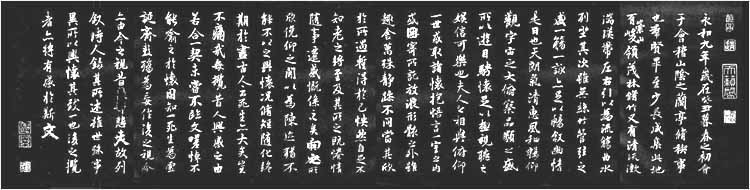 永和九年歲在癸丑暮春之初會
于會稽山陰之蘭亭脩稧事
也羣賢畢至少長咸集此地
有崇山峻領茂林脩竹又有清流激
湍暎帶左右引以為流觴曲水
列坐其次雖無絲竹管弦之
盛一觴一詠亦足以暢敘幽情
是日也天朗氣清惠風和暢仰
觀宇宙之大俯察品類之盛
所以遊目騁懷足以極視聽之
娛信可樂也夫人之相與俯仰
一世或取諸懷抱悟言一室之內
或因寄所託放浪形骸之外雖
趣舍萬殊靜躁不同當其欣
於所遇暫得於己快然自足不
知老之將至及其所之既惓情
隨事遷感慨係之矣向之所
欣俛仰之閒以為陳跡猶不
能不以之興懷況脩短隨化終
期於盡古人云死生亦大矣豈
不痛哉每攬昔人興感之由
若合一契未嘗不臨文嗟悼不
能喻之於懷固知一死生為虛
誕齊彭殤為妄作後之視今
亦由今之視昔悲夫故列
敘時人錄其所述雖世殊事
異所以興懷其致一也後之攬
者亦將有感於斯文